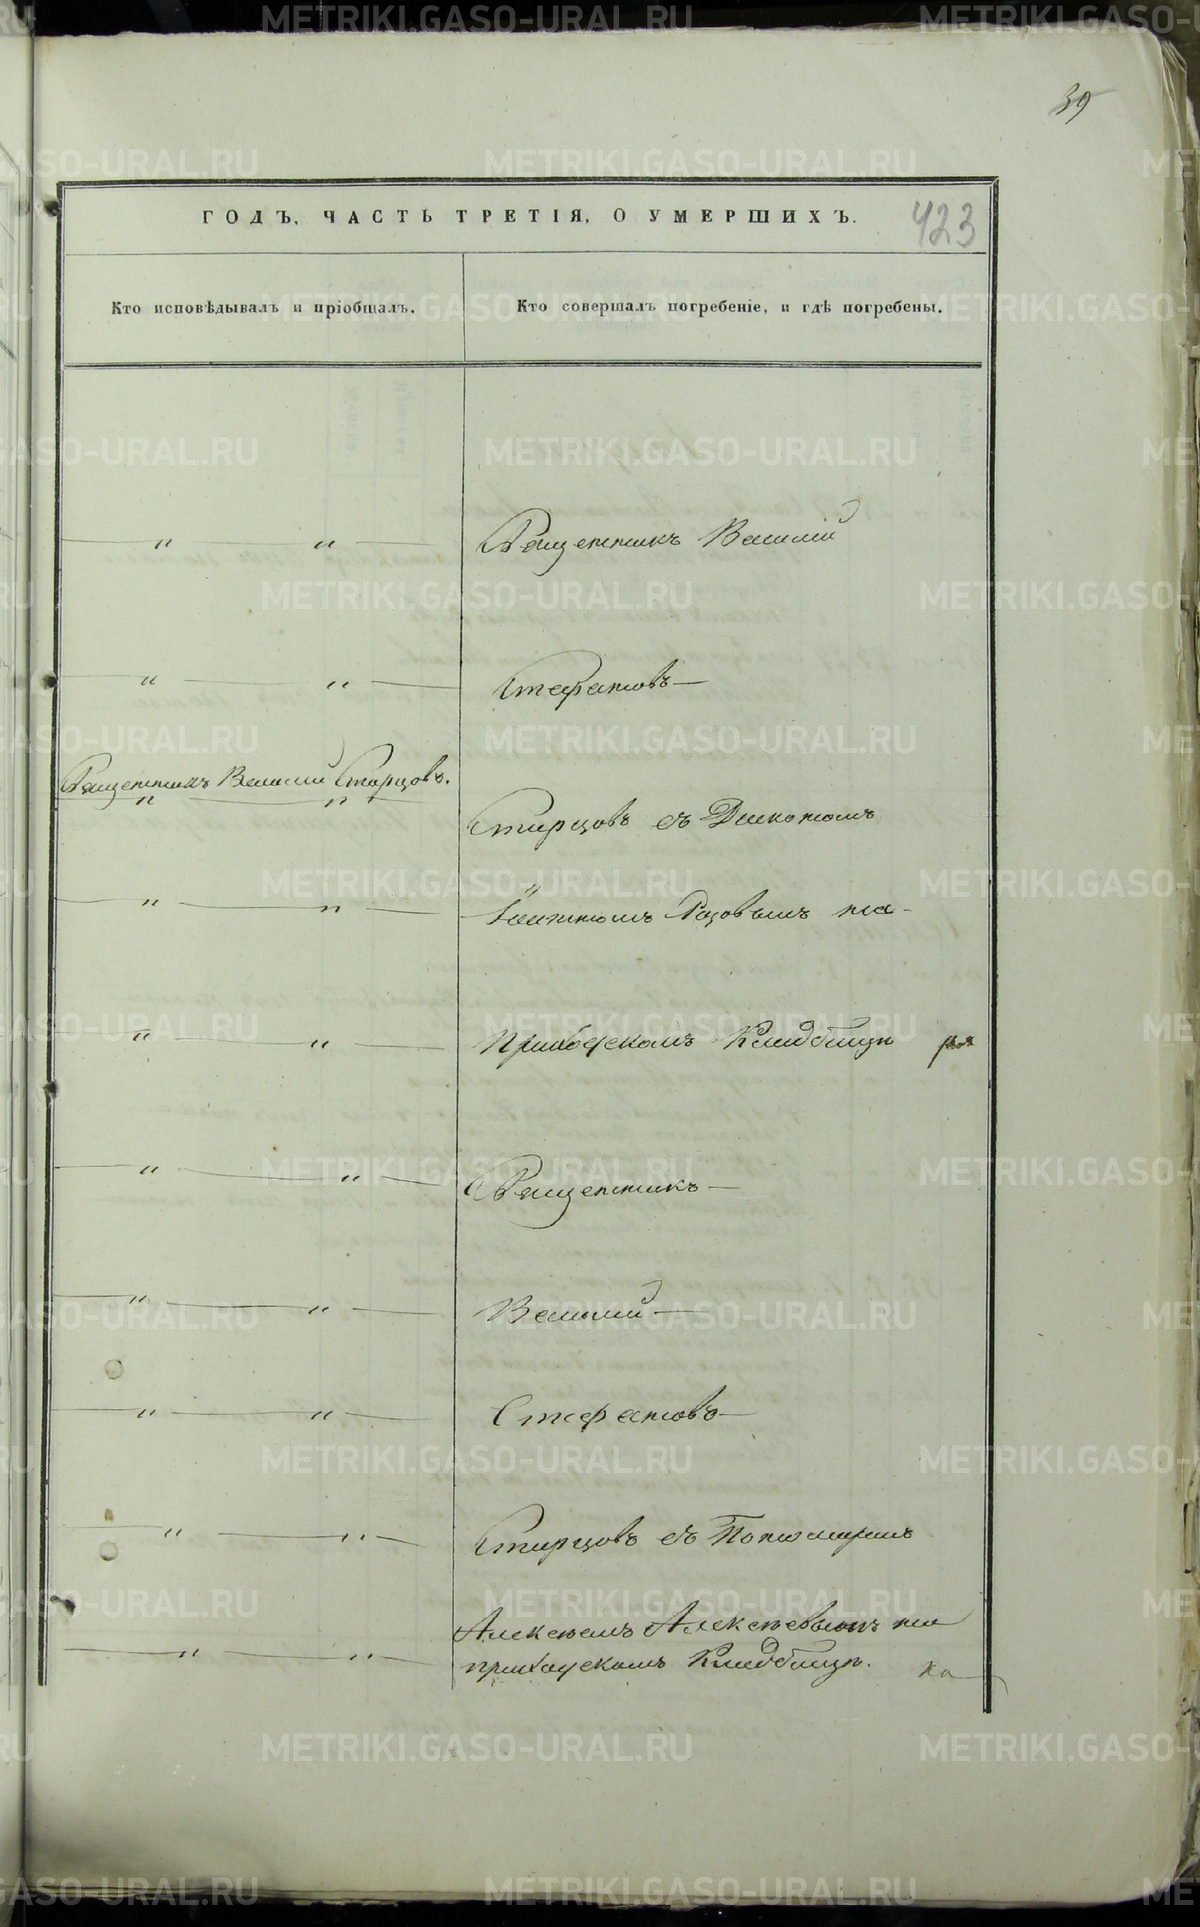 39
ГОДЪ, ЧАСТЬ ТРЕТІЯ, О УМЕРШИХЪ.
423
Кто исповѣдывалъ и пріобщалъ.
Кто совершалъ погребеніе, и гдѣ погребены.
Священникъ Василій
Стефановъ
Священникъ Василій Старцовъ.
Старцовъ съ Діакономъ
Іоанномъ на-
приходскомъ Кладбищѣ
Священникъ
Василій
Стефановъ
Старцовъ съ Пономаремъ
Алексѣемъ Алексѣевымъ на
приходскомъ Кладбищѣ.
METRIKI.GASO-URAL.RU